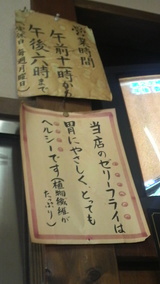 営業時間
午前十時から
午後六時まで
(定休日 毎週月曜日)
当店のゼリーフライは
胃にやさしく、とっても
ヘルシーです(植物繊維が
たっぷり)